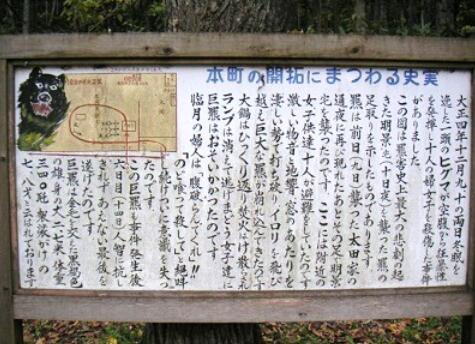 本町の開拓にまつわる史実
大正四年十二月九、十の両日冬眠を
逸した一頭のヒグマが空腹から狂暴性
を発揮し十人の婦女子を殺傷した事件
がありました。
この図は熊害史上最大の悲劇の起
きた明景宅(十日夜)を襲った熊の
足取りを示したものであります。
熊は前日(九日)襲った太田家の
通夜に再び現れたあとその足で明景
宅を襲ったのです。ここには附近の
女子供達十人が避難をしていました。
激しい物音と地響、窓のあたりを
凄い勢で打ち破り イロリを飛び
越え巨大な熊が崩れ込んできたのです
大鍋はひっくり返り焚火はけ散され
ランプは消えて逃げまどう女子達に
巨熊はおそいかかったのです。
臨月の婦人は「腹破らんでくれ!!
のど喰って殺して」と絶叫
し続けついに意識を失っ
たのです。
この巨熊も事件発生後
六日目(十四日)人智に抗し
きれず あえない最後を
遂げたのです。
巨熊は金毛を交えた黒褐色
の雄 身の丈二・七米 体重
三四〇瓩 袈裟がけの
七、八才と云はれております